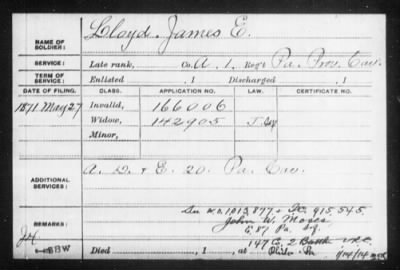 NAME OF SOLDIER: Lloyd, James E.
SERVICE: Late rank, Co. A, 1, Reg't Pa. Prov. Cav.
TERM OF SERVICE: Enlisted , 1 Discharged , 1
DATE OF FILING. CLASS. APPLICATION NO. LAW. CERTIFICATE NO.
1871 May 27 Invalid, 166006
Widow, 142905
Minor,
ADDITIONAL SERVICES: A. D. & E. 20. Pa. Cav.
See W.O. 1,013,877 = 915,545
REMARKS: John W. Moses
E. 87 Pa. Inf.
147 E, 2
Died , 1 , at Pa.